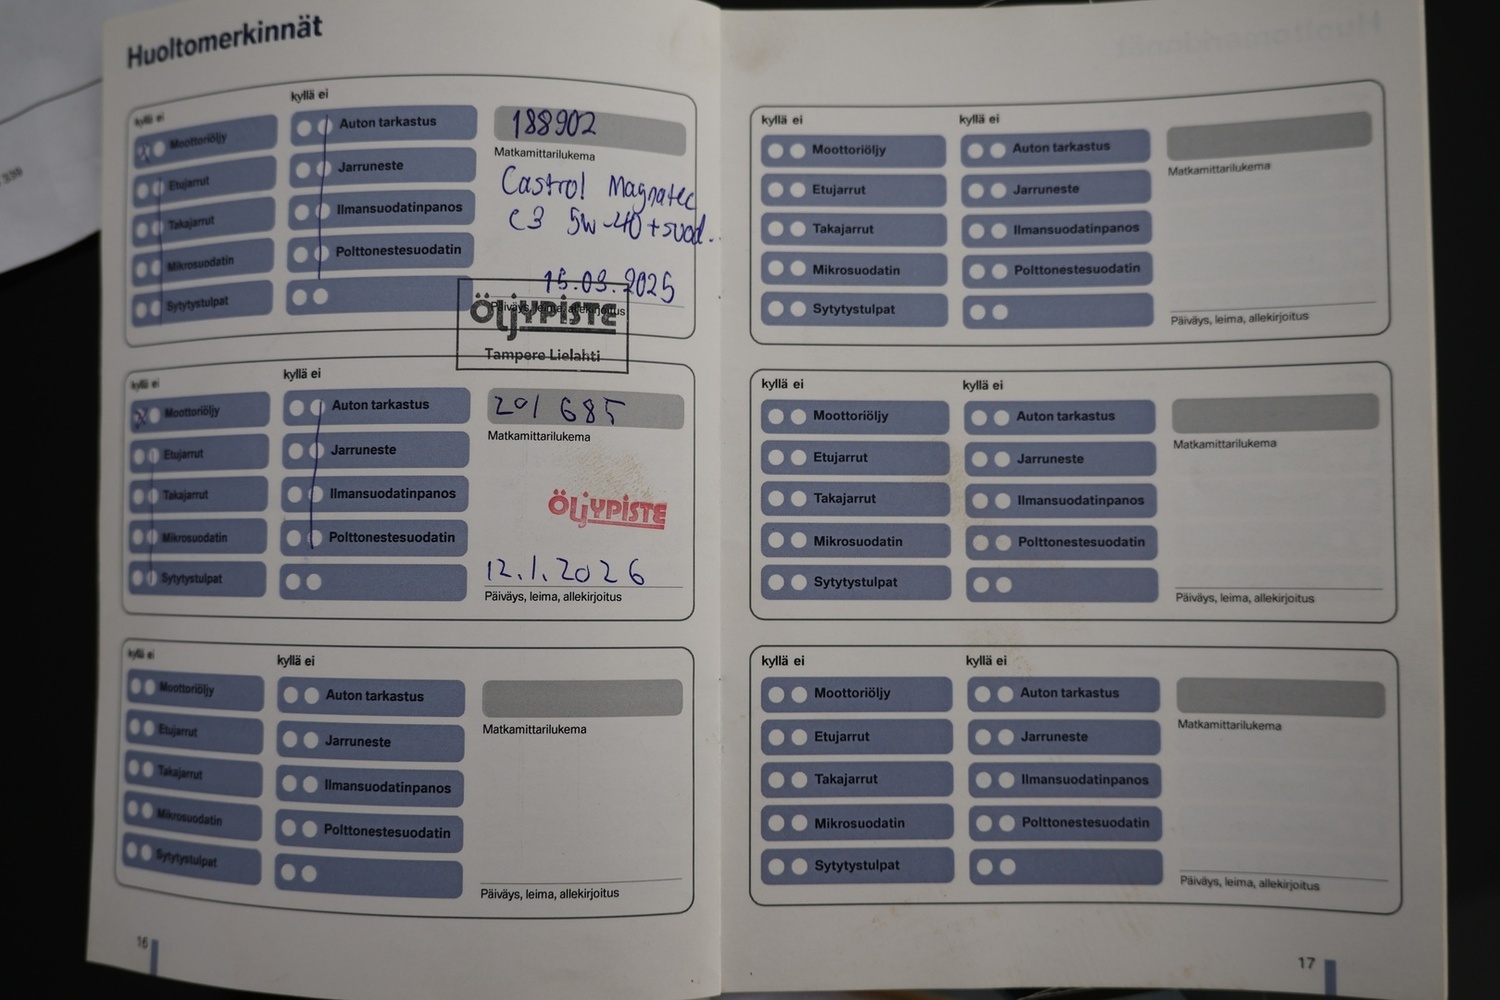 Huoltomerkinnät
kyllä ei
kyllä ei
Moottoriöljy
Etujarrut
Takajarrut
Mikrosuodatin
Sytytystulpat
Auton tarkastus
Jarruneste
Ilmansuodatinpanos
Polttonestesuodatin
188902
Matkamittarilukema
Castrol Magnatec
C3 5w-40 + suod.
15.03.2025
Päiväys, leima, allekirjoitus
ÖljYPiSTE
Tampere Lielahti
kyllä ei
kyllä ei
Moottoriöljy
Etujarrut
Takajarrut
Mikrosuodatin
Sytytystulpat
Auton tarkastus
Jarruneste
Ilmansuodatinpanos
Polttonestesuodatin
201 685
Matkamittarilukema
ÖljYPiSTE
12.1.2026
Päiväys, leima, allekirjoitus
kyllä ei
kyllä ei
Moottoriöljy
Etujarrut
Takajarrut
Mikrosuodatin
Sytytystulpat
Auton tarkastus
Jarruneste
Ilmansuodatinpanos
Polttonestesuodatin
Matkamittarilukema
Päiväys, leima, allekirjoitus
16
kyllä ei
kyllä ei
Moottoriöljy
Etujarrut
Takajarrut
Mikrosuodatin
Sytytystulpat
Auton tarkastus
Jarruneste
Ilmansuodatinpanos
Polttonestesuodatin
Matkamittarilukema
Päiväys, leima, allekirjoitus
kyllä ei
kyllä ei
Moottoriöljy
Etujarrut
Takajarrut
Mikrosuodatin
Sytytystulpat
Auton tarkastus
Jarruneste
Ilmansuodatinpanos
Polttonestesuodatin
Matkamittarilukema
Päiväys, leima, allekirjoitus
kyllä ei
kyllä ei
Moottoriöljy
Etujarrut
Takajarrut
Mikrosuodatin
Sytytystulpat
Auton tarkastus
Jarruneste
Ilmansuodatinpanos
Polttonestesuodatin
Matkamittarilukema
Päiväys, leima, allekirjoitus
17